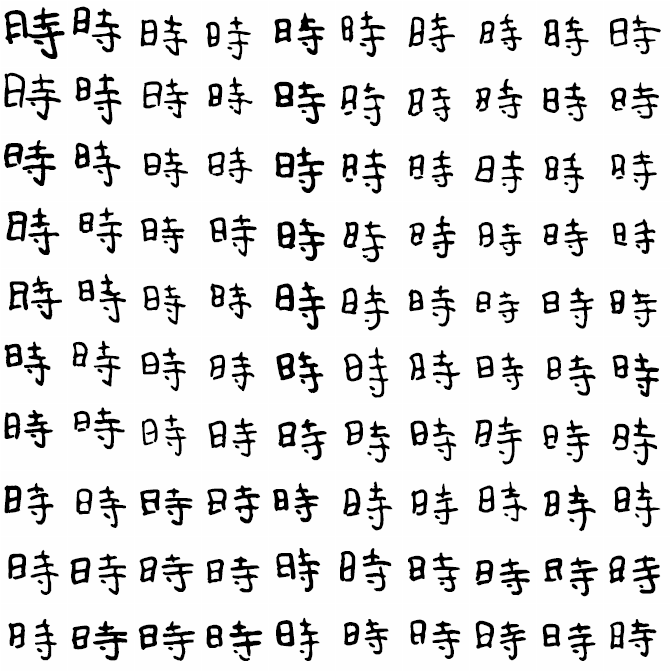 時時時時時時時時時時
時時時時時時時時時時
時時時時時時時時時時
時時時時時時時時時時
時時時時時時時時時時
時時時時時時時時時時
時時時時時時時時時時
時時時時時時時時時時
時時時時時時時時時時
時時時時時時時時時時